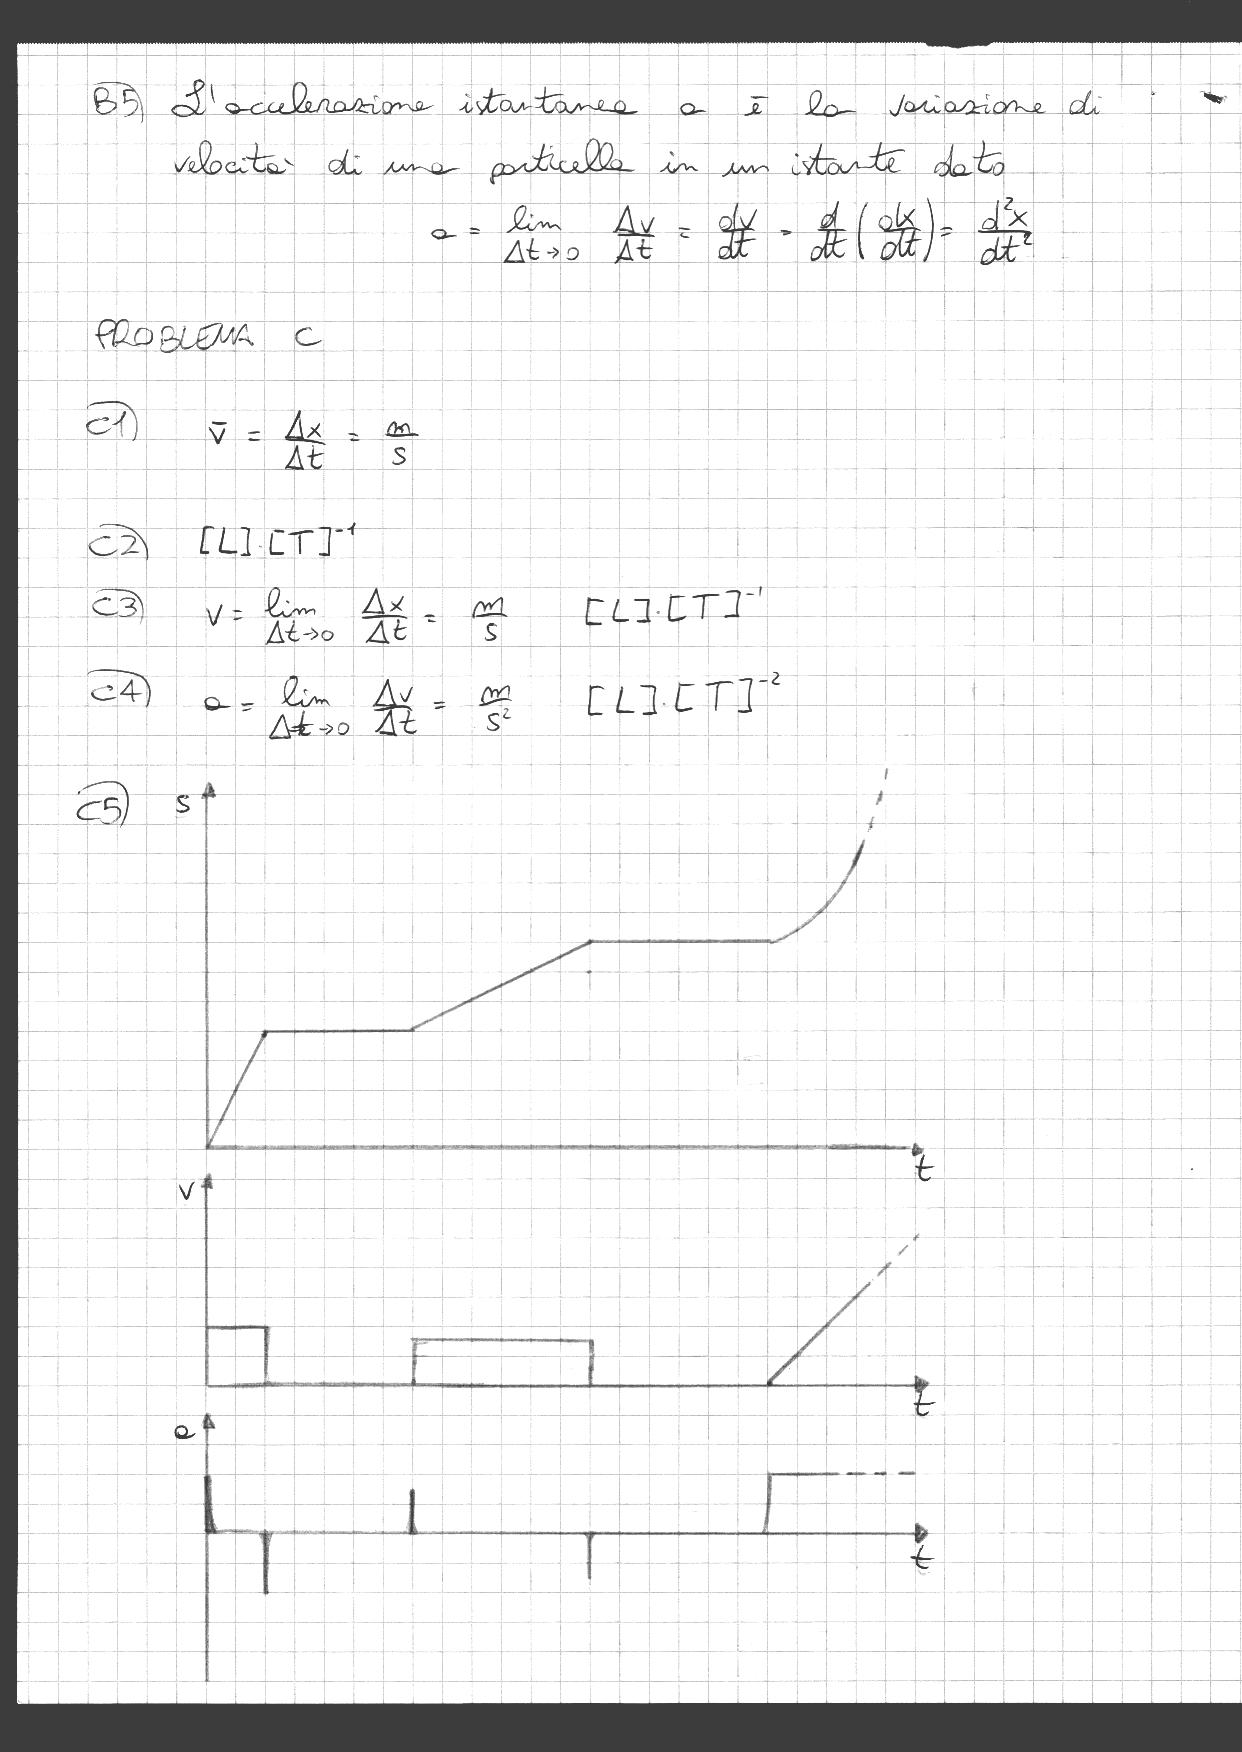 B5) L'accelerazione istantanea a è la variazione di
velocità di una particella in un istante dato
a = lim Δt→0 Δv/Δt = dv/dt = d/dt (dx/dt) = d²x/dt²
PROBLEMA C
C1) v̄ = Δx/Δt = m/s
C2) [L]·[T]⁻¹
C3) v = lim Δt→0 Δx/Δt = m/s [L]·[T]⁻¹
C4) a = lim Δt→0 Δv/Δt = m/s² [L]·[T]⁻²
C5) s
t
v
t
a
t